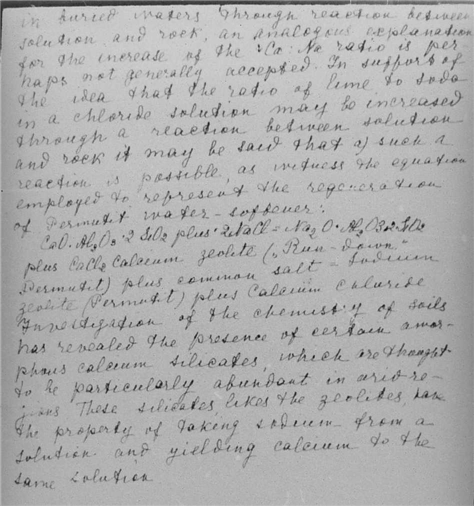 in buried waters through reaction between
solution and rock, an analogous explanation
for the increase of the Ca: Na ratio is per
haps not generally accepted. In support of
the idea that the ratio of lime to soda
in a chloride solution may be increased
through a reaction between solution
and rock it may be said that a) such a
reaction is possible, as witness the equation
employed to represent the regeneration
of Permutit water-softener:
CaO·Al2O3·2SiO2 plus 2NaCl = Na2O·Al2O3·2SiO2
plus CaCl2 Calcium zeolite („Run-down"
Permutit) plus common salt = Sodium
zeolite (Permutit) plus Calcium chloride
Investigation of the chemistry of soils
has revealed the presence of certain amor-
phous calcium silicates, which are thought
to be particularly abundant in arid re-
gions These silicates, likes the zeolites have
the property of taking sodium from a
solution and yielding calcium to the
same solution